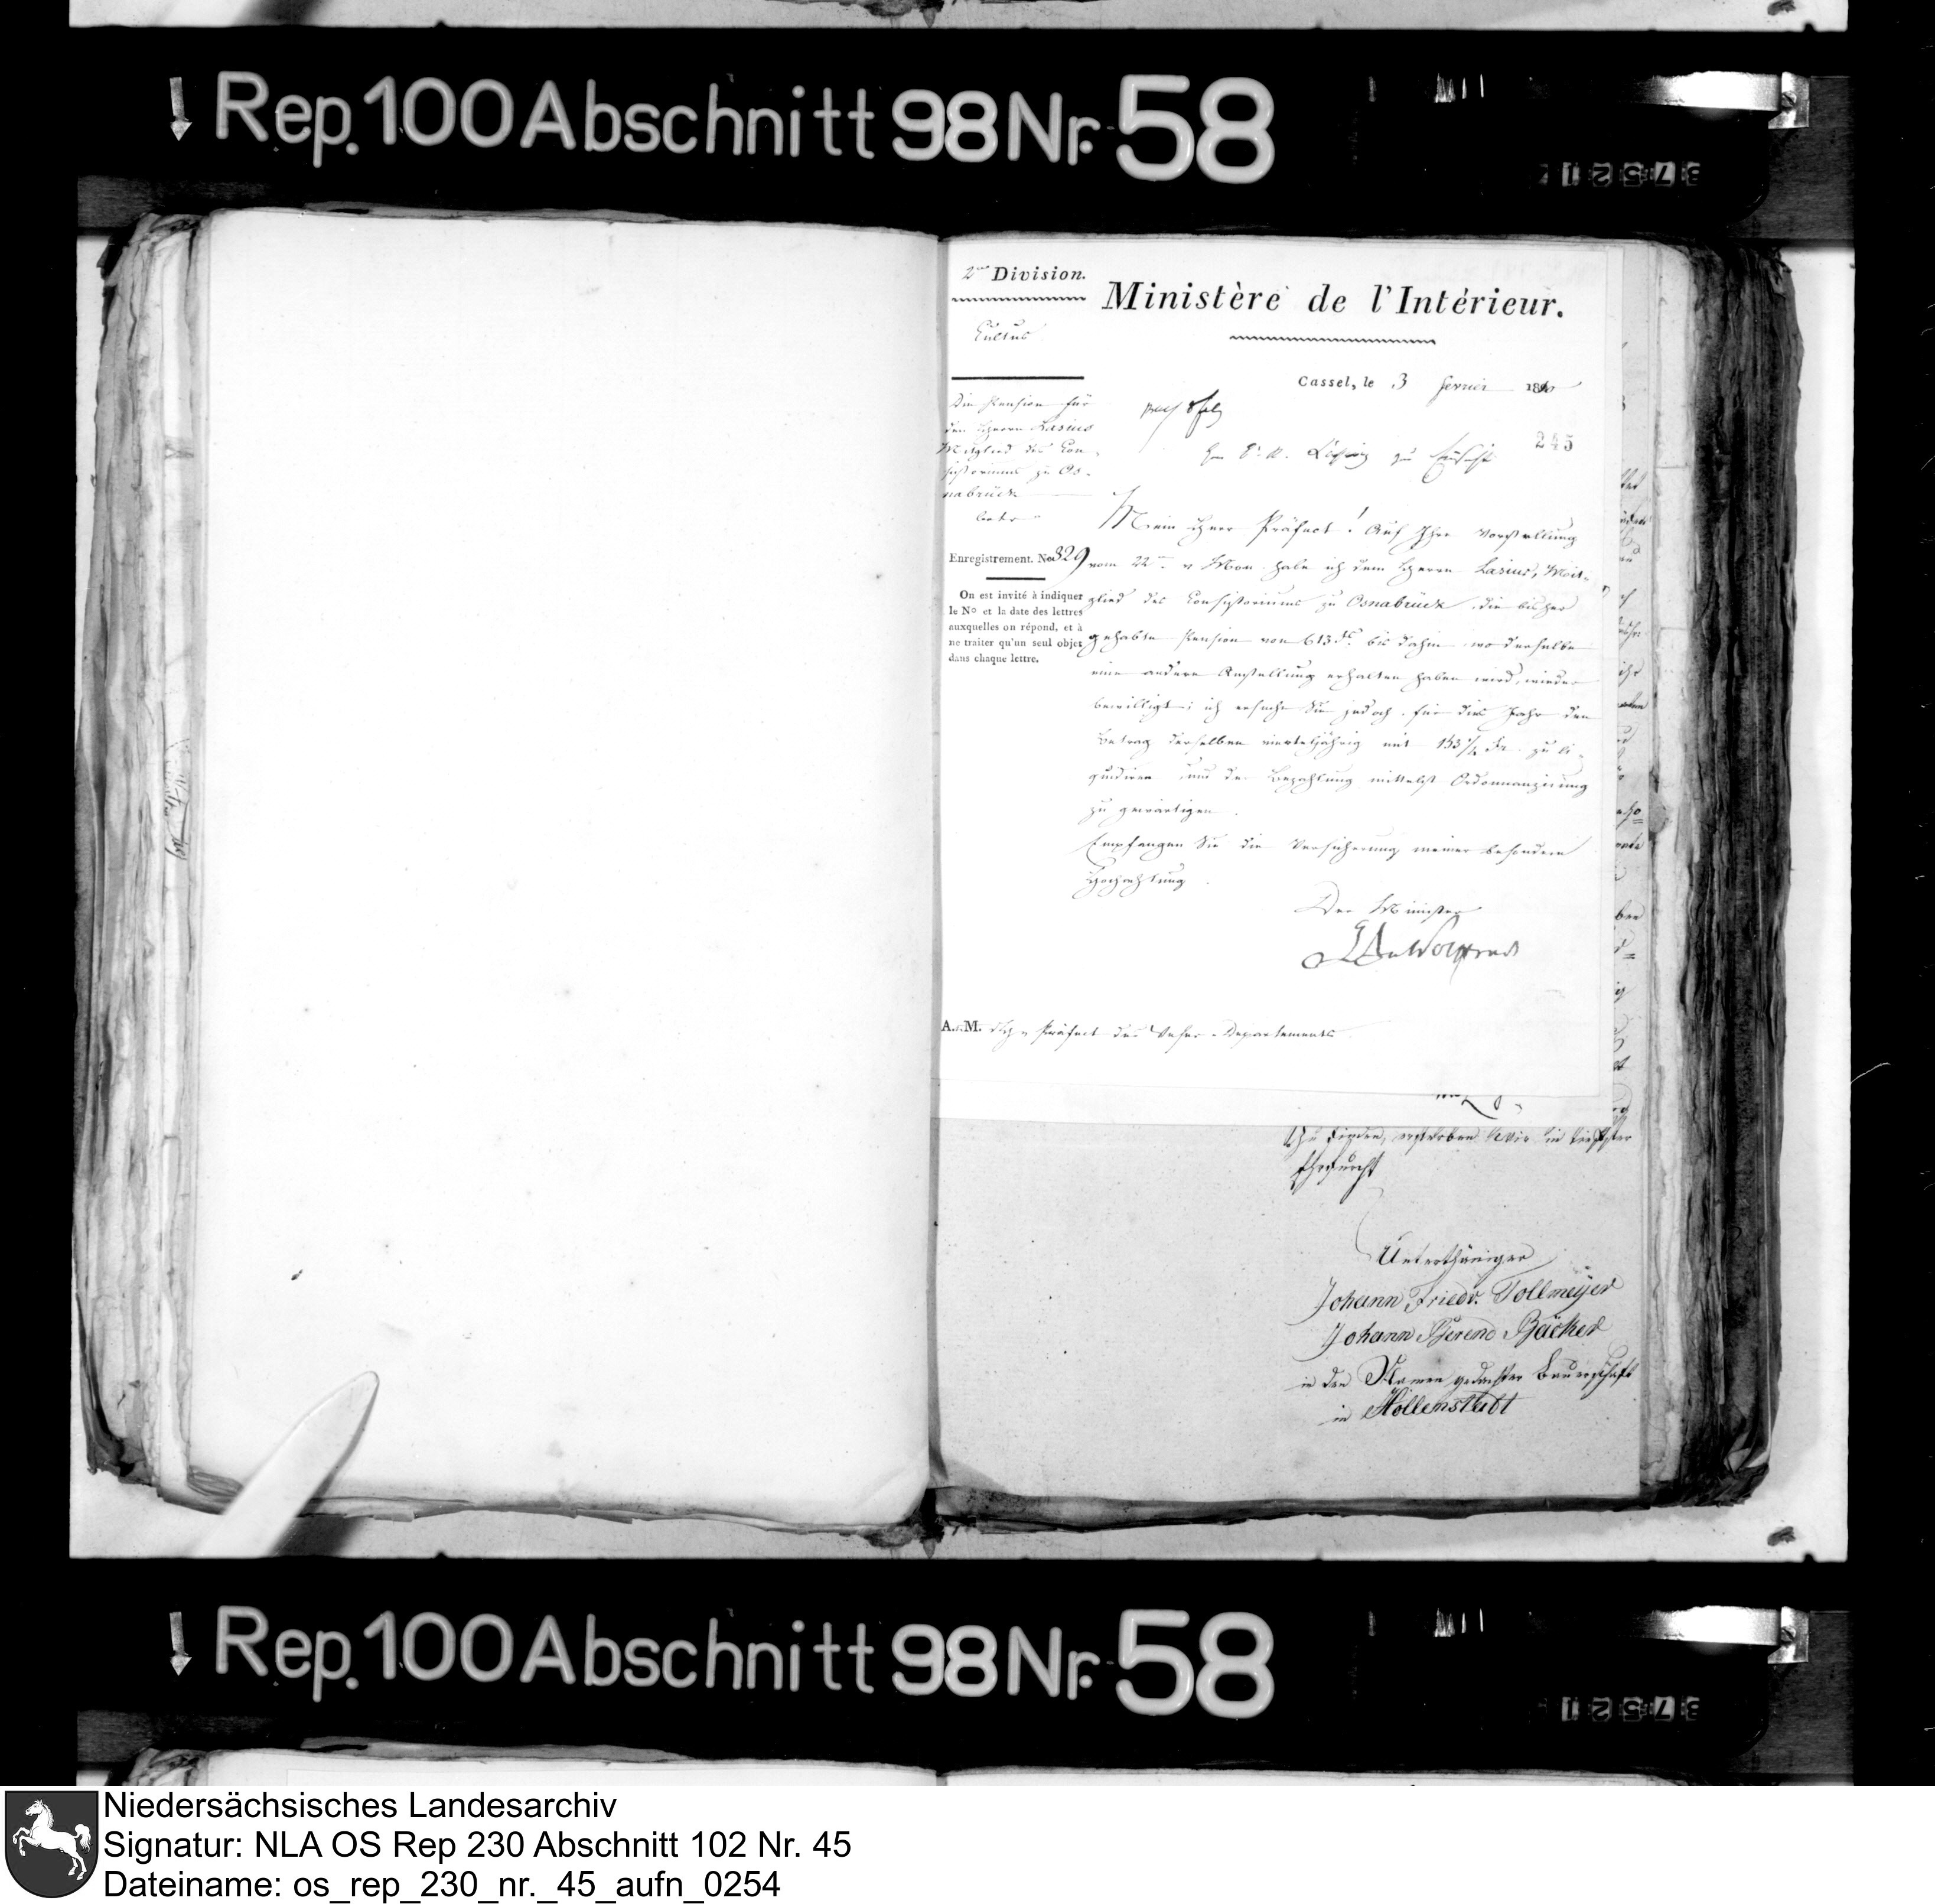 Rep. 100 Abschnitt 98 Nr. 58
37521
2te Division.
Ministère de l'Intérieur.
Cultus
Cassel, le 3 fevrier 1810
Die Pension für
den Herrn Lasius
Mitglied des Con-
sistoriums zu Os-
nabrück
betr.
245
Mein Herr Präfect! Auf Ihre Vorstellung
Enregistrement. No 829
vom 22ten v Mon. habe ich dem Herrn Lasius, Mit-
On est invité à indiquer
le No et la date des lettres
auxquelles on répond, et à
ne traiter qu'un seul objet
dans chaque lettre.
glied des Consistoriums zu Osnabrück, die bisher
gehabte Pension von 613 fr. bis dahin, wo derselbe
eine andere Anstellung erhalten haben wird, wieder
bewilligt; ich ersuche Sie jedoch, für dies Jahr den
Betrag derselben vierteljährig mit 153 1/4 fr. zu li-
quidiren und die Bezahlung mittelst Ordonnanzirung
zu gewärtigen.
Empfangen Sie die Versicherung meiner besondern
Hochachtung.
Der Minister
A. M. Präfect des Weser-Departements
zu finden, ersterben wir in tiefster
Ehrfurcht
Unterthänige
Johann Friedr. Tollmeyer
Johann Berend Bäcker
in den Namen gedachter Bauerschaft
in Hollenstedt
Rep. 100 Abschnitt 98 Nr. 58
37521
Niedersächsisches Landesarchiv
Signatur: NLA OS Rep 230 Abschnitt 102 Nr. 45
Dateiname: os_rep_230_nr._45_aufn_0254